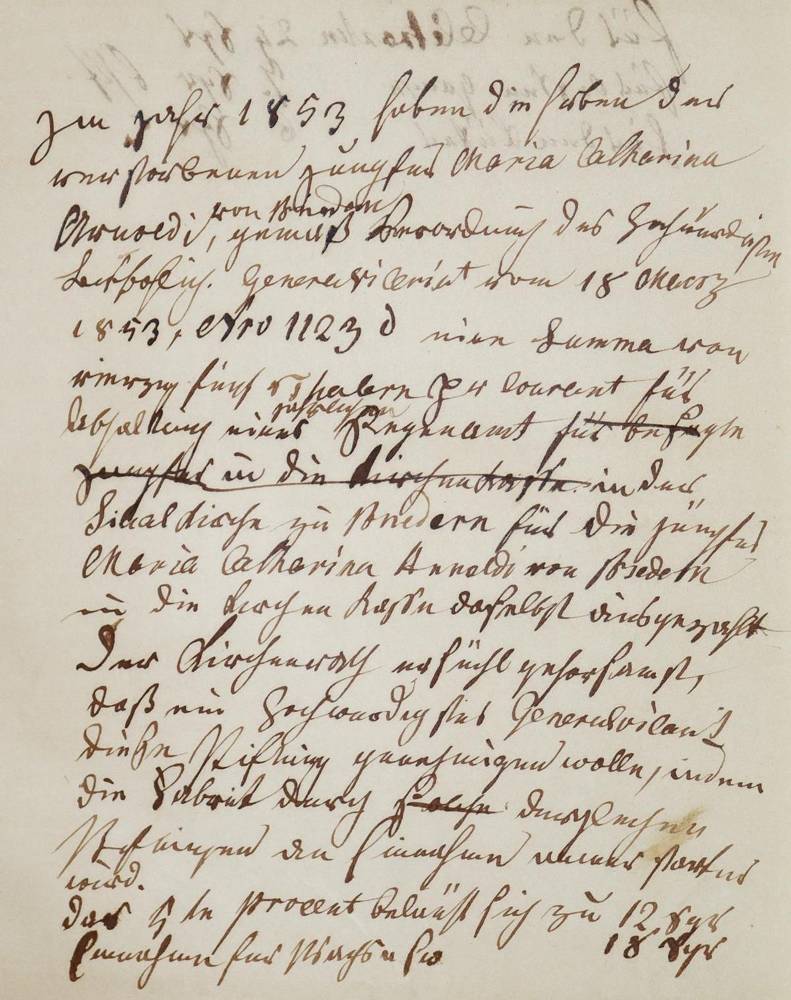 Im Jahr 1853 haben die Erben der
verstorbenen Jungfer Maria Catharina
von Bredem
Arnoldi, gemäß Verordnung des Hochwürdigsten
Bischöflich. Generalvicariat vom 18 Maerz
1853, Nro 1123 d eine Summa von
vierzig fünf Thalern pr Courant für
jährlichen
Abhaltung eines Segenamt für besagte
Jungfer in die Kirchenkasse in der
Filialkirche zu Bredem für die Jungfer
Maria Catharina Arnoldi von Bredem
in die Kirchen Kasse daselbst ausgezahlt
Der Kirchenrath ersucht gehorsamst,
daß ein Hochwurdigstes Generalvicariat
diese Stiftung genehmigen wolle, indem
die Fabrik durch solche dergleichen
Stiftungen an Einnahme immer starker
wird.
das 5 te Procent beläuft sich zu 12 Sgr
Einnahme fur 18 Sgr